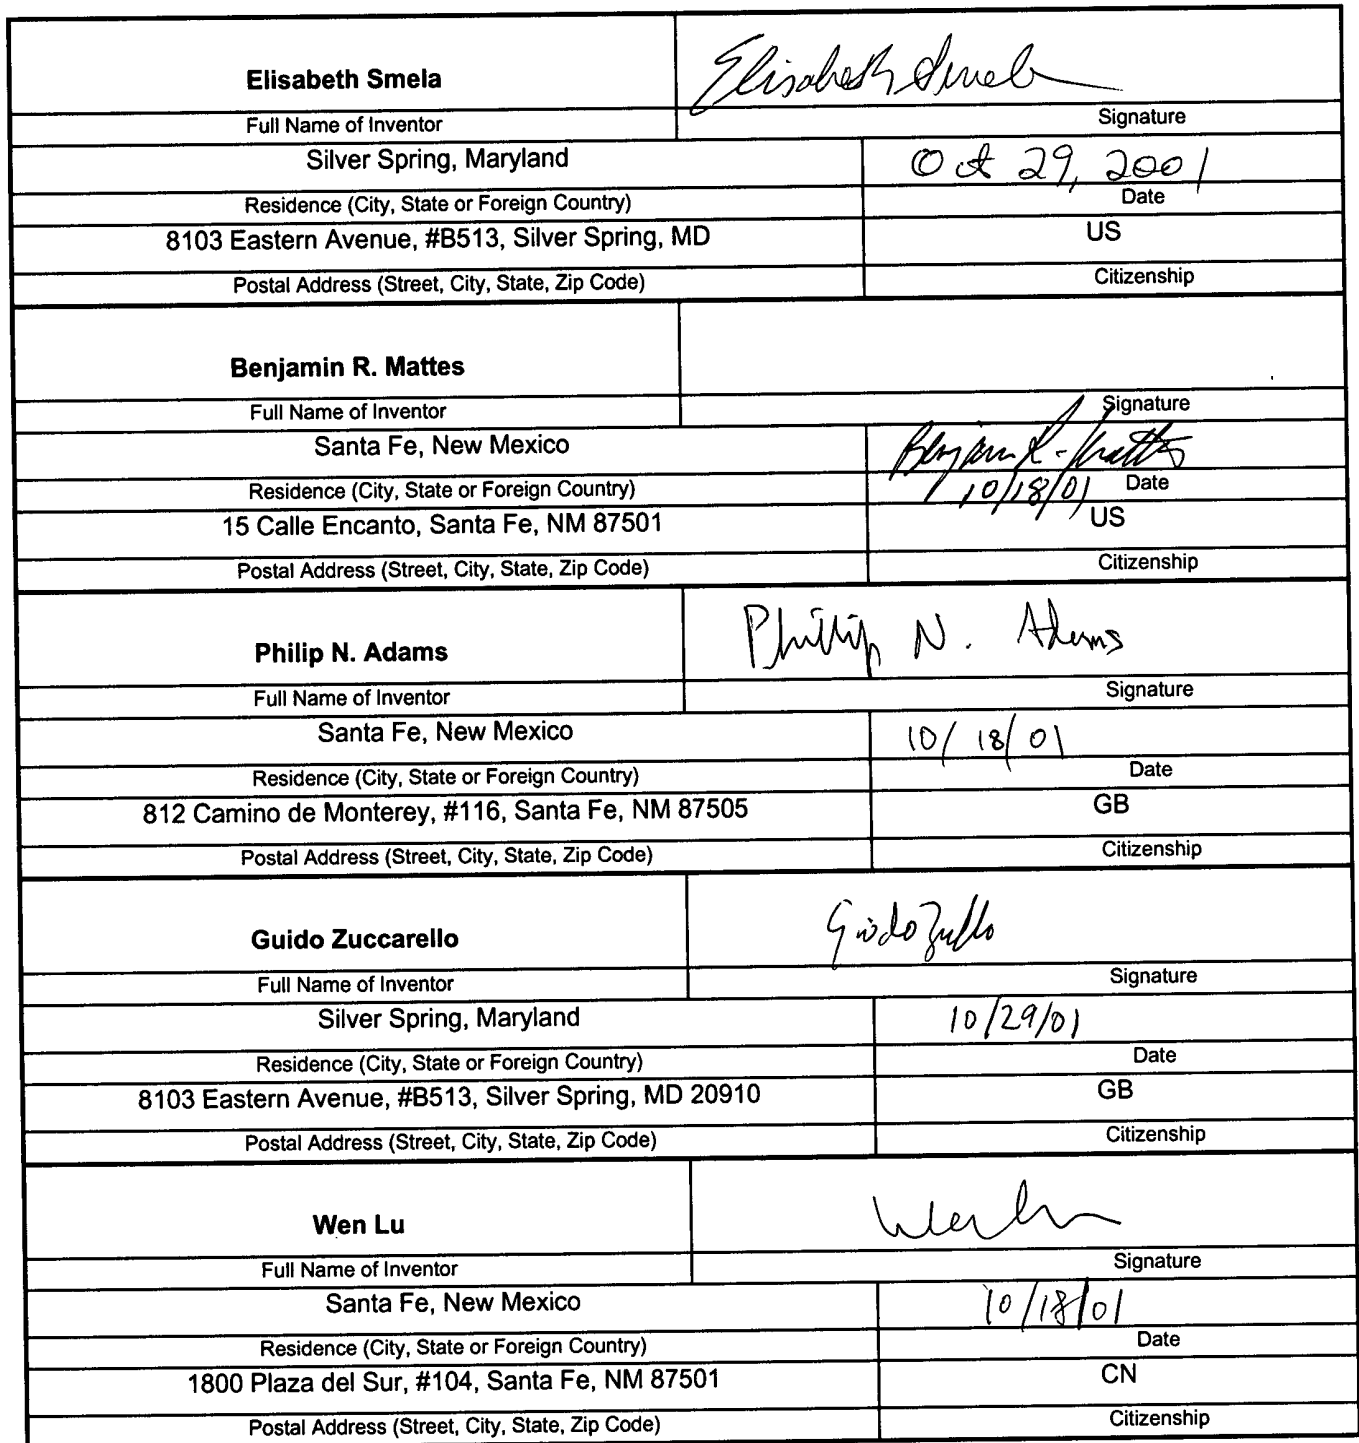 Elisabeth Smela Elisabeth Smela
Full Name of Inventor Signature
Silver Spring, Maryland Oct 29, 2001
Residence (City, State or Foreign Country) Date
8103 Eastern Avenue, #B513, Silver Spring, MD US
Postal Address (Street, City, State, Zip Code) Citizenship
Benjamin R. Mattes
Full Name of Inventor Signature
Santa Fe, New Mexico Benjamin R. Mattes
Residence (City, State or Foreign Country) 10/18/01 Date
15 Calle Encanto, Santa Fe, NM 87501 US
Postal Address (Street, City, State, Zip Code) Citizenship
Philip N. Adams Phillip N. Adams
Full Name of Inventor Signature
Santa Fe, New Mexico 10/18/01
Residence (City, State or Foreign Country) Date
812 Camino de Monterey, #116, Santa Fe, NM 87505 GB
Postal Address (Street, City, State, Zip Code) Citizenship
Guido Zuccarello Guido
Full Name of Inventor Signature
Silver Spring, Maryland 10/29/01
Residence (City, State or Foreign Country) Date
8103 Eastern Avenue, #B513, Silver Spring, MD 20910 GB
Postal Address (Street, City, State, Zip Code) Citizenship
Wen Lu Wen Lu
Full Name of Inventor Signature
Santa Fe, New Mexico 10/18/01
Residence (City, State or Foreign Country) Date
1800 Plaza del Sur, #104, Santa Fe, NM 87501 CN
Postal Address (Street, City, State, Zip Code) Citizenship